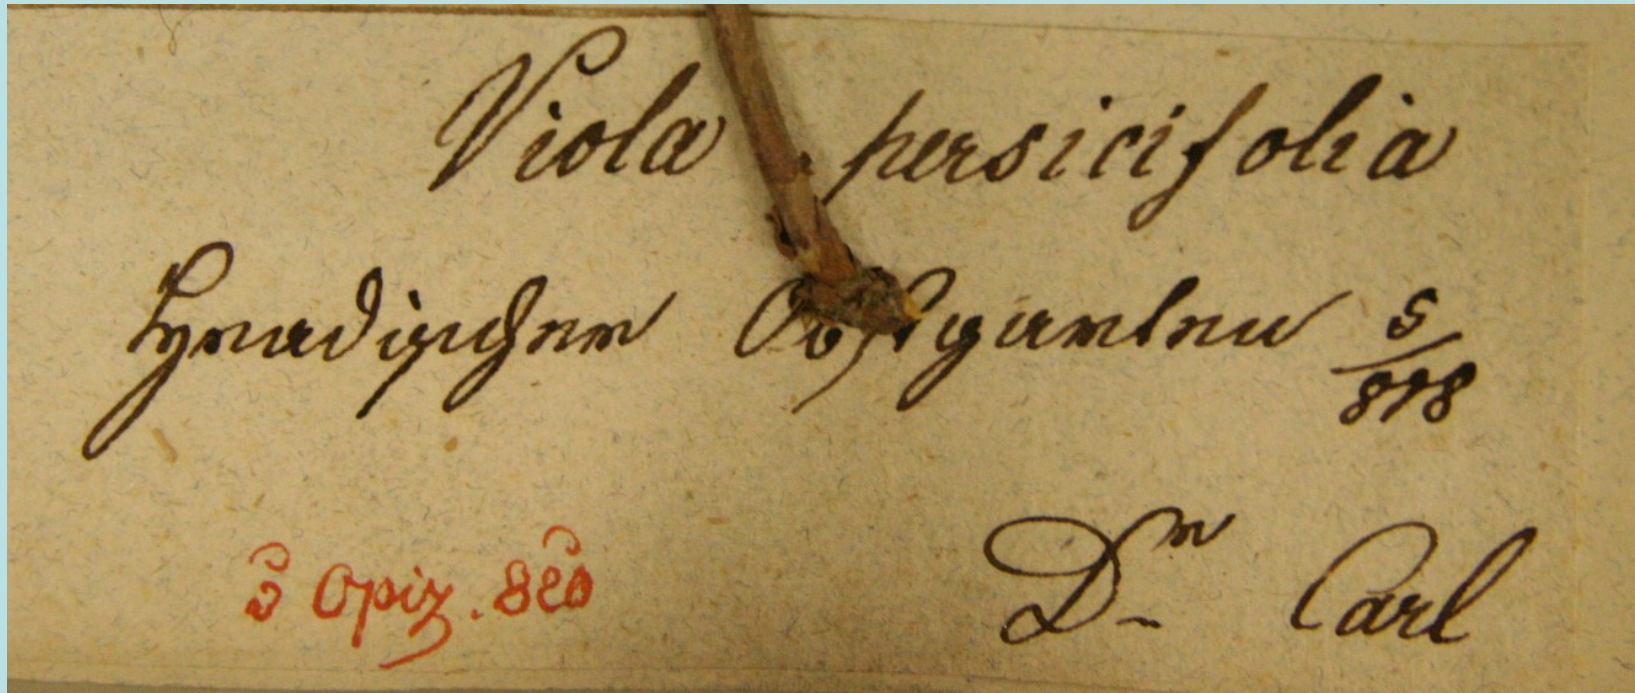 Viola persicifolia
Hradischer Obstgarten 5/818
Opiz. 820
Dr Carl